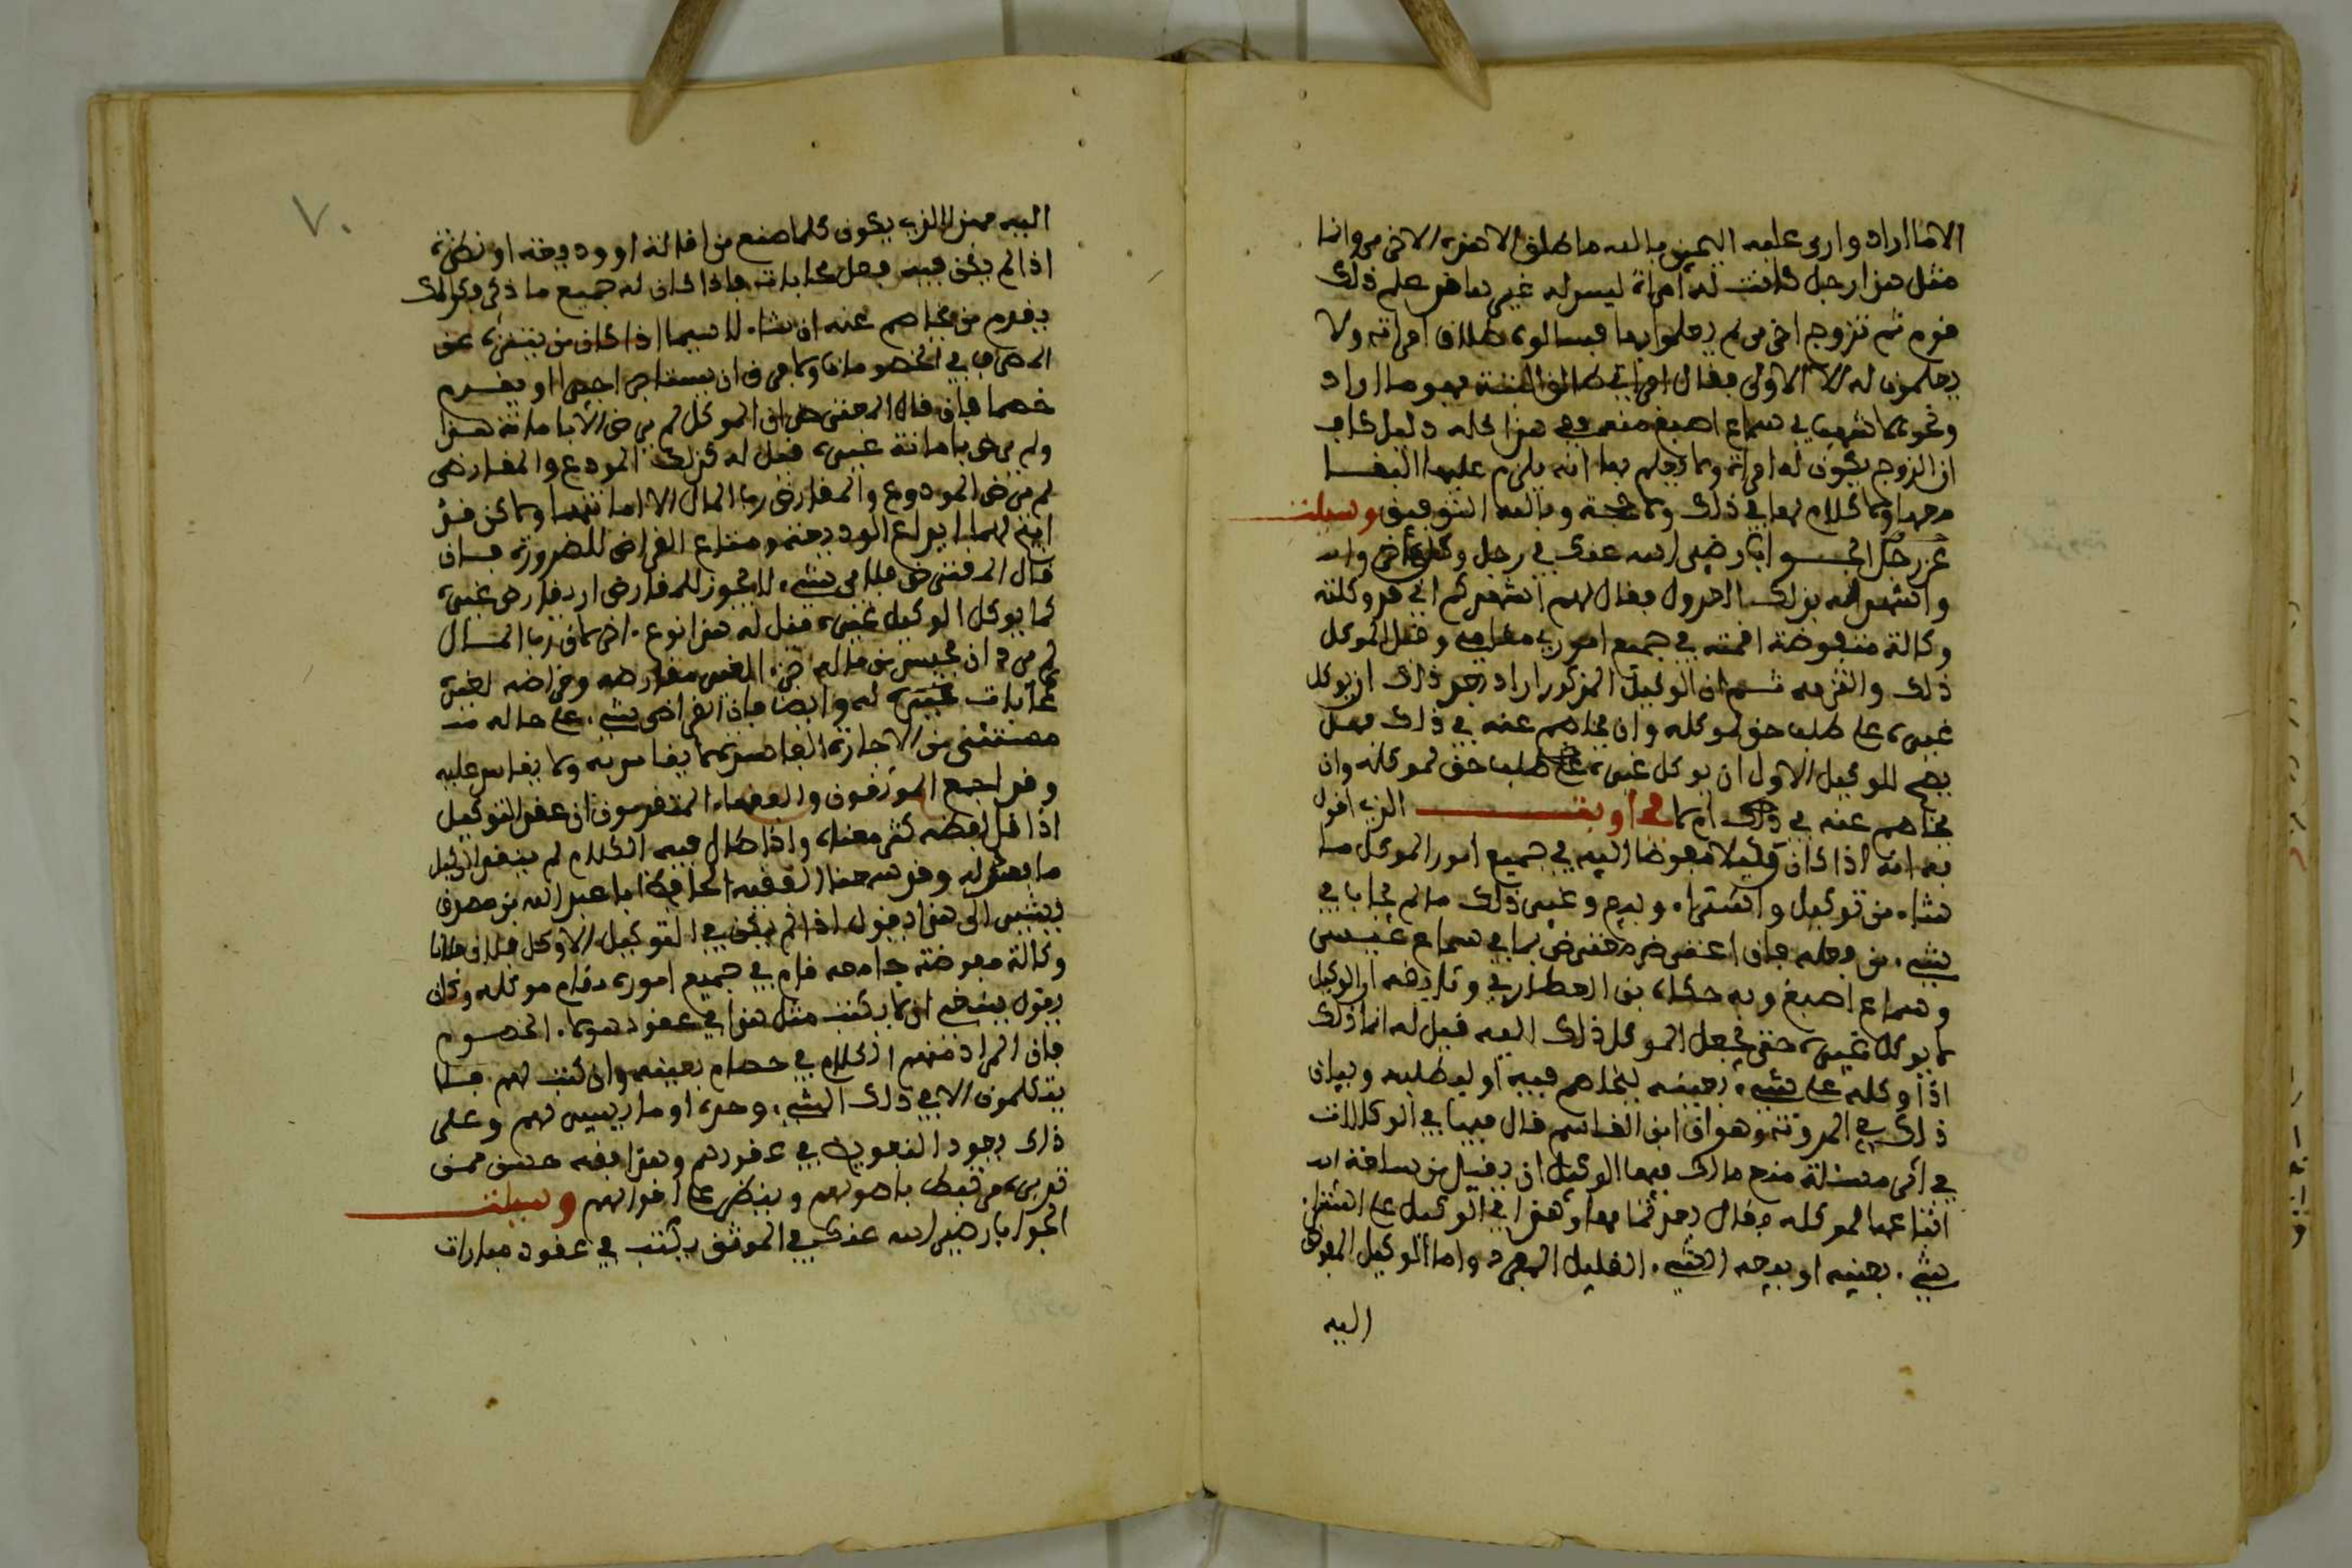 الا ما اراد واري عليه اليمين بالله ما طلق الا هذه الاخرى وانما
مثل هذا رجل كانت له امراة ليس له غيرها قد علم ذلك
قوم ثم تزوج اخرى لم يعلموا بها فسالوه طلاق امراته ولا
يعلمون له الا الاولى فقال امراتي طالق البتة فهو ما اراد
ونحو هذا في سماع اصبغ منه وفي هذا كله دليل كاف
ان الزوج يكون له امراة ولا يعلم بها انه يلزم عليها
ولا كلام لها في ذلك ولا حجة وبالله التوفيق وسيلت
عن رجل الجواب رضي الله عنك في رجل وكل اخر
واشهد له بذلك العدول فقال لهم اشهدكم اني قد وكلته
وكالة مفوضة اقمته في جميع اموري مقامي وقبل الموكل
ذلك والتزمه ثم ان الوكيل المذكور اراد بعد ذلك ان يوكل
غيره على طلب حق لموكله وان يخاصم عنه في ذلك فهل
يصح للوكيل الاول ان يوكل غيره على طلب حق لموكله وان
يخاصم عنه في ذلك ام لا فجاوبت الذي اقول
به انه اذا كان وكيلا مفوضا اليه في جميع امور الموكل ما
شاء من توكيل واشتراء وبيع وغير ذلك ما لم يحابا في
شيء من فعله فان اعترض معترض بما في سماع عيسى
وسماع اصبغ وبه حكاه بن العطار في وثايقه ان الوكيل
لا يوكل غيره حتى يجعل الموكل ذلك اليه قيل له انما ذلك
اذا وكله على شيء بعينه ليخاصم فيه او ليطلبه وبيان
ذلك في المدونة وهو ان ابن القاسم قال فيها في الوكالات
في اكثر مسئلة منع مالك فيها الوكيل ان يقيل من سلعة
ابتاعها لموكله وقال بعد ثمنها وهذا في الوكيل على اشتراء
شيء بعينه او بوجه الشيء القليل المفرد واما الوكيل المفوض
اليه
٧٠
اليه فهذا الذي يكون كلما صنع من اقالة او وديعة او نظرة
اذا لم يكن فيه فعل محابات فاذا كان له جميع ما ذكر فكذلك
يقدم من يخاصم عنه ان شاء لا سيما اذا كان من يتنزه عن
الدخول في الخصومات ولا يعرف ان يستاجر اجيرا او يقدم
خصما فان قال المعترض ان الموكل لم يرض الا بامانة هذا
ولم يرض بامانة غيره قيل له كذلك المودع والمقارض
لم يرض المودع والمقارض رب المال الا امانتهما ولاكن قد
ابيح لهما ايداع الوديعة ومتاع القراض للضرورة فان
قال المعترض فلاي شيء لا يجوز للمقارض ان يقارض غيره
كما يوكل الوكيل غيره فقل له هذا نوع اخر لان رب المال
لم يرد ان يحبس من ماله
محابات غيره له وايضا فان القراض شيء على حاله
مستثنى من الاجارة الفاسدة لا يقاس به ولا يقاس عليه
وقد اجمع الموثقون والفقهاء المتقدمون ان عقد التوكيل
اذا قل لفظه كثر معناه واذا طال فيه الكلام لم يبق الوكيل
ما يفعله وقد سمعنا الفقيه الحافظ ابا عبد الله بن
يشير الى هذا ويقول اذا لم يكن في التوكيل الا وكل فلان فلانا
وكالة مفوضة جامعة قام في جميع اموره مقام موكله وكان
يقول ينبغي ان لا يكتب مثل هذا في عقود هولاء الخصوم
فان المراد منهم الكلام في خصام بعينه وان كتب لهم فلا
يتكلمون الا في ذلك الشيء وحده او ما يبين لهم وعلى
ذلك يجود التفويض في عقودهم وهذا فقه حسن
تدبره مرتبط باصولهم وينظر على اقوالهم وسيلت
الجواب رضي الله عنك في الموثق يكتب في عقود مبارات